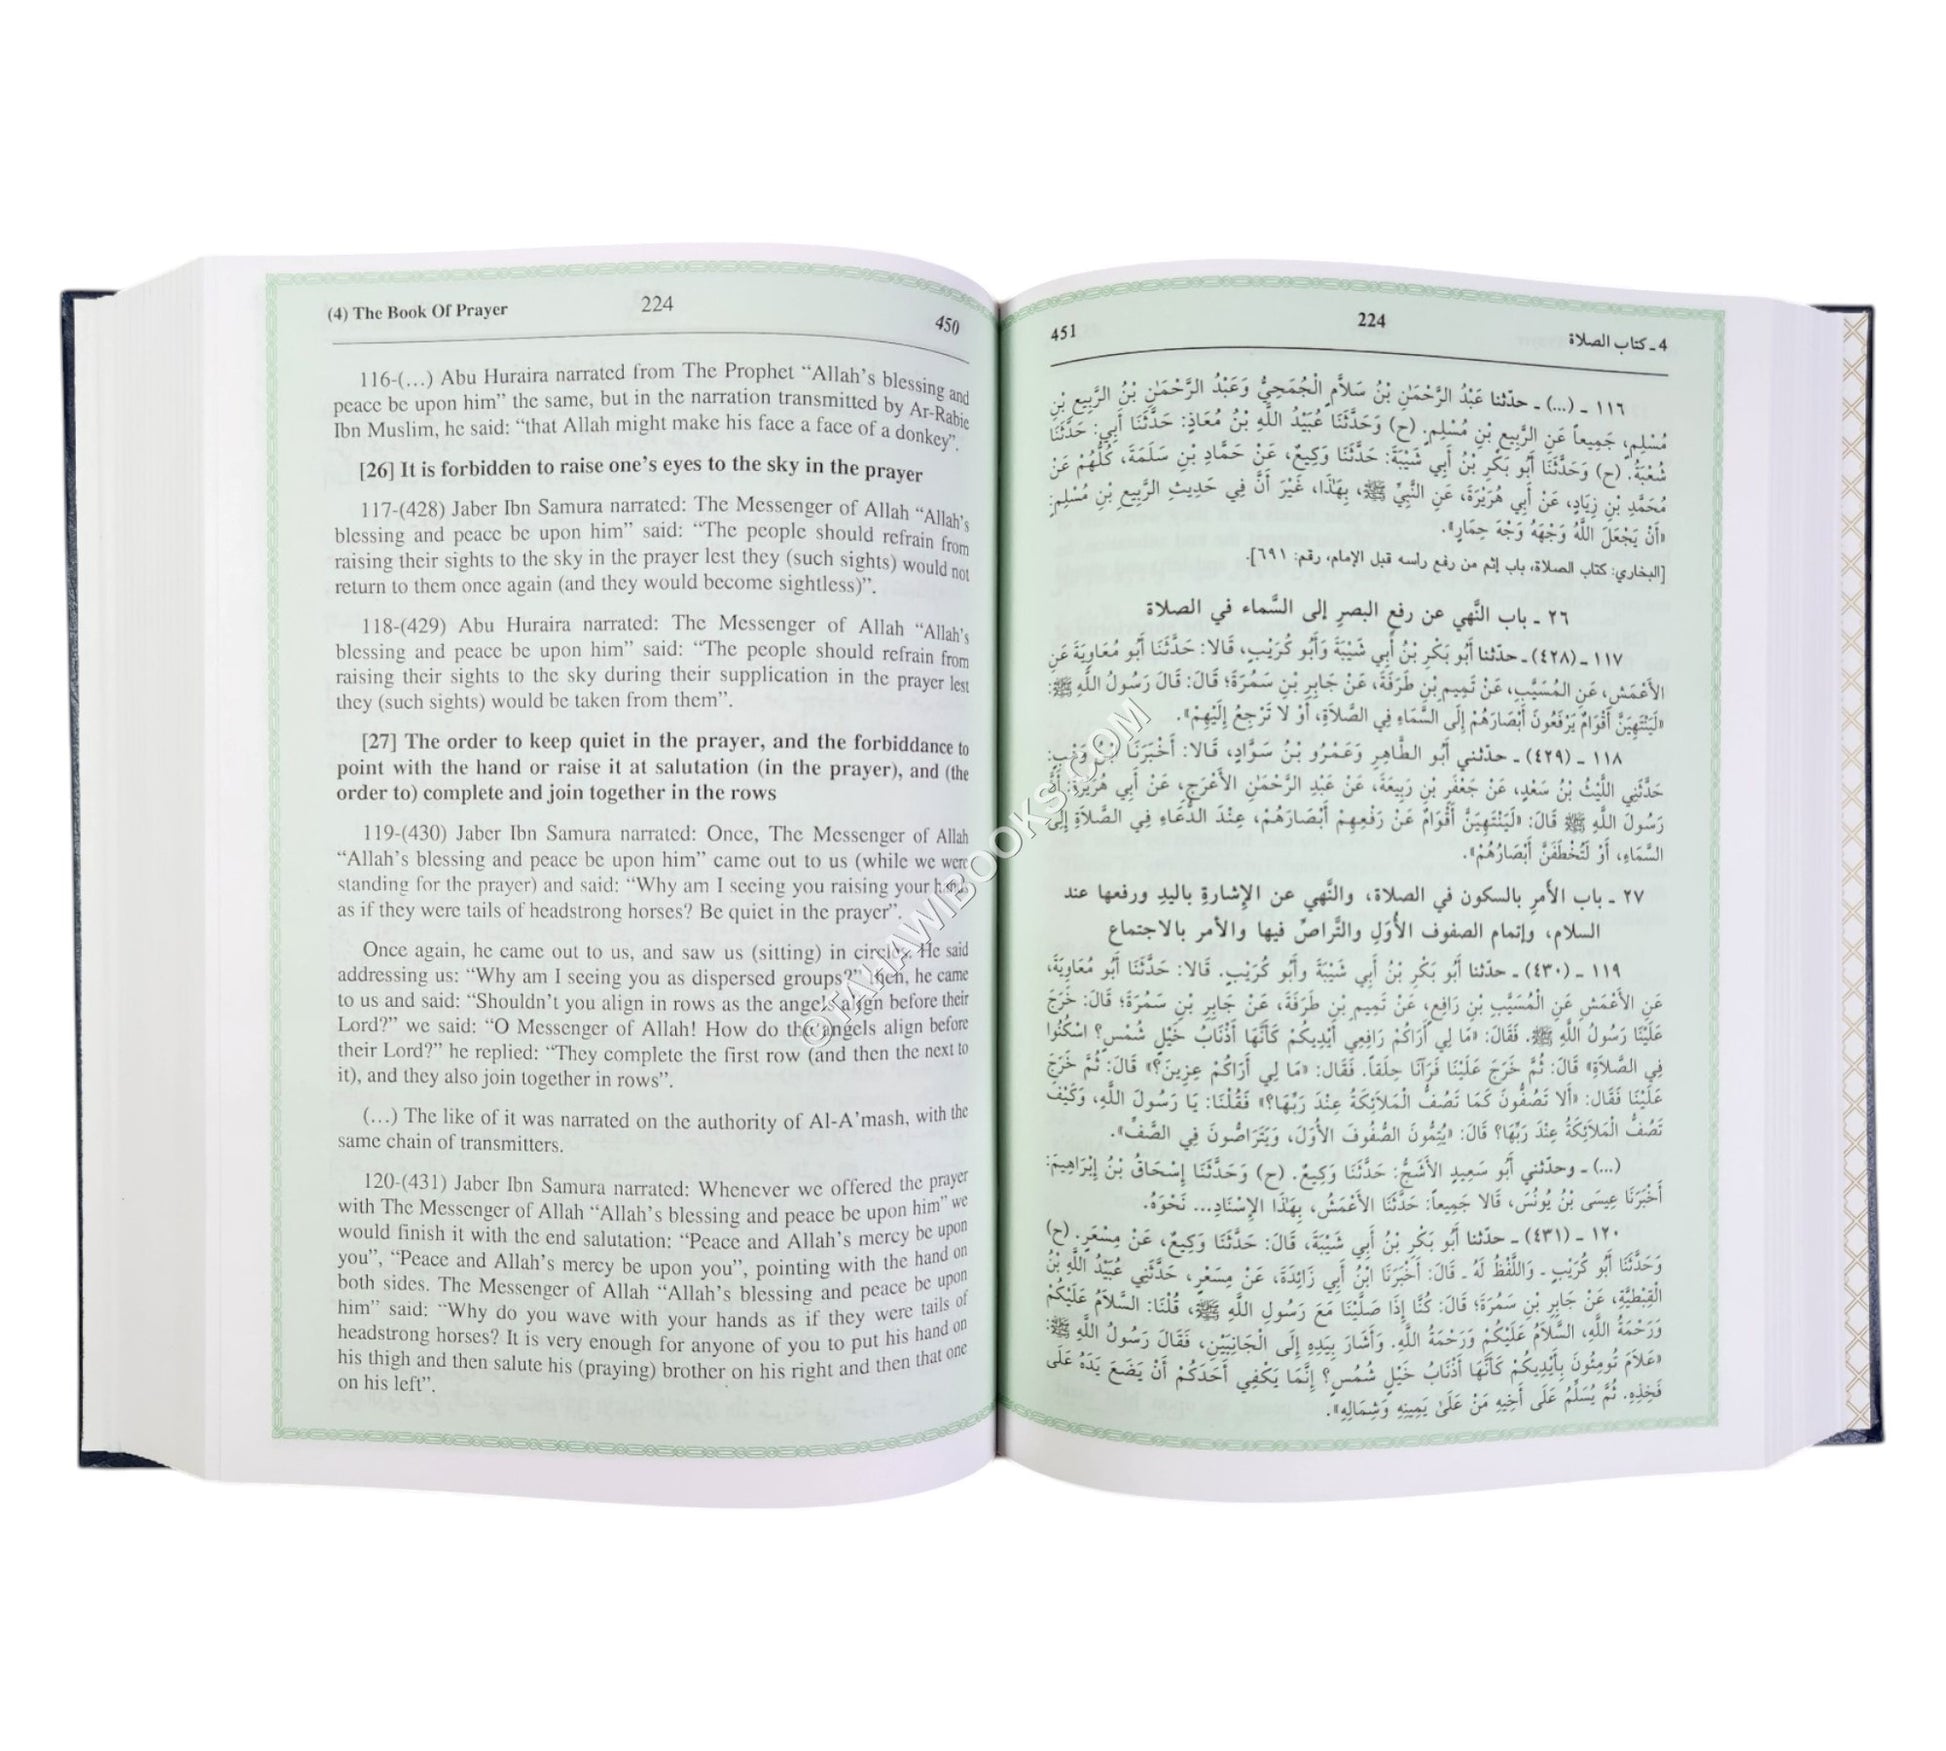 (4) The Book Of Prayer 224 450
116-(…) Abu Huraira narrated from The Prophet “Allah’s blessing and
peace be upon him” the same, but in the narration transmitted by Ar-Rabie
Ibn Muslim, he said: “that Allah might make his face a face of a donkey”.
[26] It is forbidden to raise one’s eyes to the sky in the prayer
117-(428) Jaber Ibn Samura narrated: The Messenger of Allah “Allah’s
blessing and peace be upon him” said: “The people should refrain from
raising their sights to the sky in the prayer lest they (such sights) would not
return to them once again (and they would become sightless)”.
118-(429) Abu Huraira narrated: The Messenger of Allah “Allah’s
blessing and peace be upon him” said: “The people should refrain from
raising their sights to the sky during their supplication in the prayer lest
they (such sights) would be taken from them”.
[27] The order to keep quiet in the prayer, and the forbiddance to
point with the hand or raise it at salutation (in the prayer), and (the
order to) complete and join together in the rows
119-(430) Jaber Ibn Samura narrated: Once, The Messenger of Allah
“Allah’s blessing and peace be upon him” came out to us (while we were
standing for the prayer) and said: “Why am I seeing you raising your hands
as if they were tails of headstrong horses? Be quiet in the prayer”.
Once again, he came out to us, and saw us (sitting) in circles. He said
addressing us: “Why am I seeing you as dispersed groups?” Then, he came
to us and said: “Shouldn’t you align in rows as the angels align before their
Lord?” we said: “O Messenger of Allah! How do the angels align before
their Lord?” he replied: “They complete the first row (and then the next to
it), and they also join together in rows”.
(…) The like of it was narrated on the authority of Al-A’mash, with the
same chain of transmitters.
120-(431) Jaber Ibn Samura narrated: Whenever we offered the prayer
with The Messenger of Allah “Allah’s blessing and peace be upon him” we
would finish it with the end salutation: “Peace and Allah’s mercy be upon
you”, “Peace and Allah’s mercy be upon you”, pointing with the hand on
both sides. The Messenger of Allah “Allah’s blessing and peace be upon
him” said: “Why do you wave with your hands as if they were tails of
headstrong horses? It is very enough for anyone of you to put his hand on
his thigh and then salute his (praying) brother on his right and then that one
on his left”.
4 ـ كتاب الصلاة 224 451
١١٦ ـ (...) ـ حدّثنا عَبْدُ الرَّحْمَنِ بْنُ سَلاَّمٍ الْجُمَحِيُّ وَعَبْدُ الرَّحْمَنِ بْنُ الرَّبِيعِ بْنِ
مُسْلِمٍ، جَمِيعاً عَنِ الرَّبِيعِ بْنِ مُسْلِمٍ. (ح) وَحَدَّثَنَا عُبَيْدُ اللَّهِ بْنُ مُعَاذٍ: حَدَّثَنَا أَبِي: حَدَّثَنَا
شُعْبَةُ. (ح) وَحَدَّثَنَا أَبُو بَكْرِ بْنُ أَبِي شَيْبَةَ: حَدَّثَنَا وَكِيعٌ، عَنْ حَمَّادِ بْنِ سَلَمَةَ، كُلُّهُمْ عَنْ
مُحَمَّدِ بْنِ زِيَادٍ، عَنْ أَبِي هُرَيْرَةَ، عَنِ النَّبِيِّ ﷺ، بِهَذَا، غَيْرَ أَنَّ فِي حَدِيثِ الرَّبِيعِ بْنِ مُسْلِمٍ:
«أَنْ يَجْعَلَ اللَّهُ وَجْهَهُ وَجْهَ حِمَارٍ».
[البخاري: كتاب الصلاة، باب إثم من رفع رأسه قبل الإمام، رقم: ٦٩١].
٢٦ ـ باب النَّهي عن رفع البصرِ إلى السَّماء في الصلاة
١١٧ ـ (٤٢٨) ـ حدّثنا أَبُو بَكْرِ بْنُ أَبِي شَيْبَةَ وَأَبُو كُرَيْبٍ، قَالاَ: حَدَّثَنَا أَبُو مُعَاوِيَةَ عَنِ
الأَعْمَشِ، عَنِ المُسَيَّبِ، عَنْ تَمِيمِ بْنِ طَرَفَةَ، عَنْ جَابِرِ بْنِ سَمُرَةَ؛ قَالَ: قَالَ رَسُولُ اللَّهِ ﷺ:
«لَيَنْتَهِيَنَّ أَقْوَامٌ يَرْفَعُونَ أَبْصَارَهُمْ إِلَى السَّمَاءِ فِي الصَّلاَةِ، أَوْ لاَ تَرْجِعُ إِلَيْهِمْ».
١١٨ ـ (٤٢٩) ـ حدّثني أَبُو الطَّاهِرِ وَعَمْرُو بْنُ سَوَّادٍ، قَالاَ: أَخْبَرَنَا ابْنُ وَهْبٍ:
حَدَّثَنِي اللَّيْثُ بْنُ سَعْدٍ، عَنْ جَعْفَرِ بْنِ رَبِيعَةَ، عَنْ عَبْدِ الرَّحْمَنِ الأَعْرَجِ، عَنْ أَبِي هُرَيْرَةَ: أَنَّ
رَسُولَ اللَّهِ ﷺ قَالَ: «لَيَنْتَهِيَنَّ أَقْوَامٌ عَنْ رَفْعِهِمْ أَبْصَارَهُمْ، عِنْدَ الدُّعَاءِ فِي الصَّلاَةِ إِلَى
السَّمَاءِ، أَوْ لَتُخْطَفَنَّ أَبْصَارُهُمْ».
٢٧ ـ باب الأمرِ بالسكون في الصلاة، والنَّهي عن الإشارةِ باليدِ ورفعها عند
السلام، وإتمام الصفوف الأُوَلِ والتَّراصِّ فيها والأمر بالاجتماع
١١٩ ـ (٤٣٠) ـ حدّثنا أَبُو بَكْرِ بْنُ أَبِي شَيْبَةَ وأَبُو كُرَيْبٍ. قَالاَ: حَدَّثَنَا أَبُو مُعَاوِيَةَ،
عَنِ الأَعْمَشِ عَنِ الْمُسَيَّبِ بْنِ رَافِعٍ، عَنْ تَمِيمِ بْنِ طَرَفَةَ، عَنْ جَابِرِ بْنِ سَمُرَةَ؛ قَالَ: خَرَجَ
عَلَيْنَا رَسُولُ اللَّهِ ﷺ. فَقَالَ: «مَا لِي أَرَاكُمْ رَافِعِي أَيْدِيكُمْ كَأَنَّهَا أَذْنَابُ خَيْلٍ شُمْسٍ؟ اسْكُنُوا
فِي الصَّلاَةِ» قَالَ: ثُمَّ خَرَجَ عَلَيْنَا فَرَآنَا حِلَقاً. فَقَالَ: «مَا لِي أَرَاكُمْ عِزِينَ؟» قَالَ: ثُمَّ خَرَجَ
عَلَيْنَا فَقَالَ: «أَلا تَصُفُّونَ كَمَا تَصُفُّ الْمَلاَئِكَةُ عِنْدَ رَبِّهَا؟» فَقُلْنَا: يَا رَسُولَ اللَّهِ، وَكَيْفَ
تَصُفُّ الْمَلاَئِكَةُ عِنْدَ رَبِّهَا؟ قَالَ: «يُتِمُّونَ الصُّفُوفَ الأُوَلَ، وَيَتَرَاصُّونَ فِي الصَّفِّ».
(...) ـ وحدّثني أَبُو سَعِيدٍ الأَشَجُّ: حَدَّثَنَا وَكِيعٌ. (ح) وَحَدَّثَنَا إِسْحَاقُ بْنُ إِبْرَاهِيمَ:
أَخْبَرَنَا عِيسَى بْنُ يُونُسَ، قَالا جَمِيعاً: حَدَّثَنَا الأَعْمَشُ، بِهَذَا الإِسْنَادِ... نَحْوَهُ.
١٢٠ ـ (٤٣١) ـ حدّثنا أَبُو بَكْرِ بْنُ أَبِي شَيْبَةَ، قَالَ: حَدَّثَنَا وَكِيعٌ، عَنْ مِسْعَرٍ. (ح)
وَحَدَّثَنَا أَبُو كُرَيْبٍ ـ وَاللَّفْظُ لَهُ ـ قَالَ: أَخْبَرَنَا ابْنُ أَبِي زَائِدَةَ، عَنْ مِسْعَرٍ، حَدَّثَنِي عُبَيْدُ اللَّهِ بْنُ
الْقِبْطِيَّةِ، عَنْ جَابِرِ بْنِ سَمُرَةَ؛ قَالَ: كُنَّا إِذَا صَلَّيْنَا مَعَ رَسُولِ اللَّهِ ﷺ، قُلْنَا: السَّلاَمُ عَلَيْكُمْ
وَرَحْمَةُ اللَّهِ، السَّلاَمُ عَلَيْكُمْ وَرَحْمَةُ اللَّهِ. وَأَشَارَ بِيَدِهِ إِلَى الْجَانِبَيْنِ، فَقَالَ رَسُولُ اللَّهِ ﷺ:
«عَلاَمَ تُومِئُونَ بِأَيْدِيكُمْ كَأَنَّهَا أَذْنَابُ خَيْلٍ شُمُسٍ؟ إِنَّمَا يَكْفِي أَحَدَكُمْ أَنْ يَضَعَ يَدَهُ عَلَى
فَخِذِهِ. ثُمَّ يُسَلِّمُ عَلَى أَخِيهِ مَنْ عَلَى يَمِينِهِ وَشِمَالِهِ».
©TAHAWIBOOKS.COM